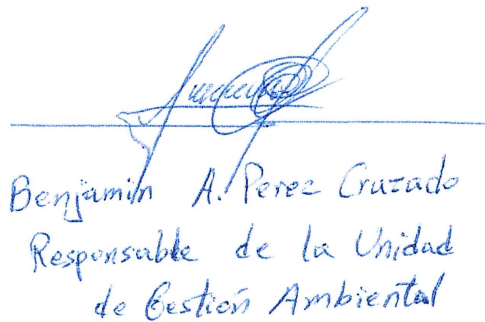 Benjamin A. Perez Cruzado
Responsable de la Unidad
de Gestión Ambiental